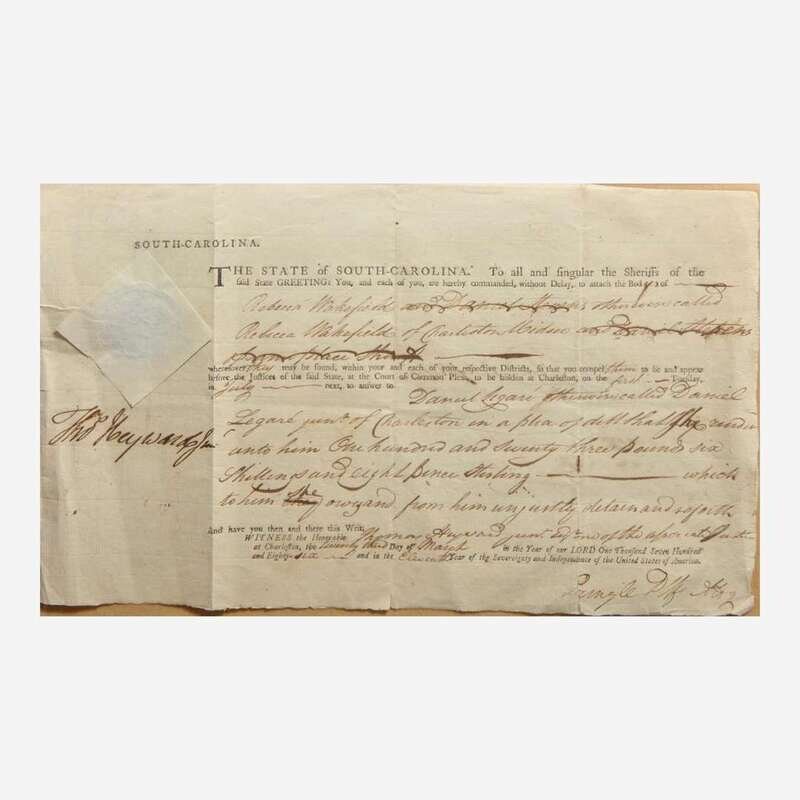 SOUTH-CAROLINA.
THE STATE of SOUTH-CAROLINA. To all and singular the Sheriffs of the
said State GREETING: You, and each of you, are hereby commanded, without Delay, to attach the Body of
Rebecca Wakefield otherwise called
Rebecca Wakefield of Charleston Widow
wheresoever they may be found, within your and each of your respective Districts, so that you compel them to be and appear
before the Justices of the said State, at the Court of Common Pleas, to be holden at Charleston, on the first Tuesday,
in July next, to answer to
Daniel Legare otherwise called Daniel
Legare junr. of Charleston in a plea of debt that she render
unto him One hundred and seventy three pounds six
Shillings and eight pence Sterling which
to him she owes and from him unjustly detains and so forth
Thos Heyward Jun
And have you then and there this Writ.
WITNESS the Honorable Thomas Heyward junr. Esqr. one of the associate Justices
at Charleston, the twenty third Day of March in the Year of our LORD One Thousand Seven Hundred
and Eighty-six and in the Eleventh Year of the Sovereignty and Independence of the United States of America.
Pringle Plfs Atty